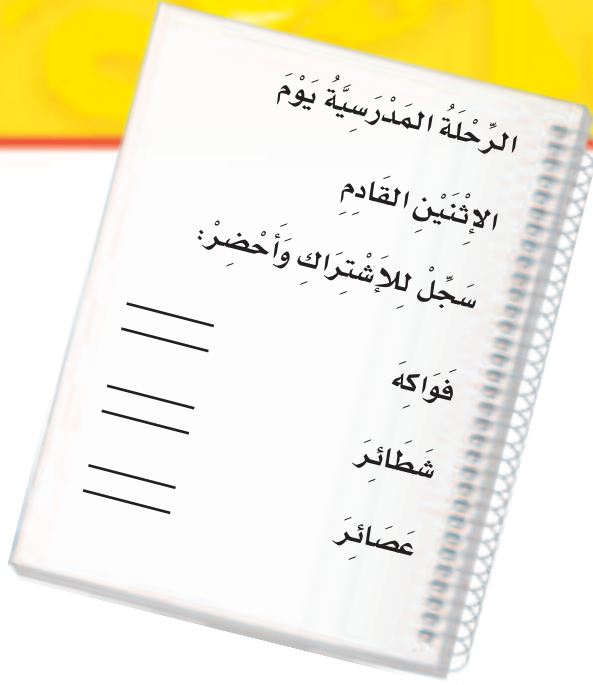 الرِّحْلَةُ المَدْرَسِيَّةُ يَوْمَ
الإِثْنَيْنِ القَادِمِ
سَجِّلْ لِلاَشْتِرَاكِ وَأَحْضِرْ:
فَوَاكِهَ
شَطَائِرَ
عَصَائِرَ